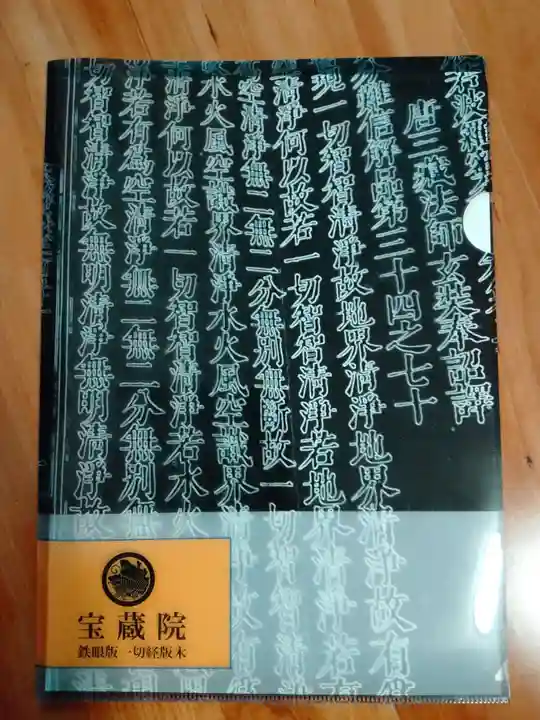 唐三藏法師玄奘奉詔譯
難信解品第三十四之七十
現一切智智清淨故地界清淨地界清淨故有
清淨何以故若一切智智清淨若地界清淨若有
空清淨無二無二分無別無斷故一切智智清
水火風空識界清淨水火風空識界清
清淨何以故若一切智智清淨若水火
淨若有為空清淨無二無二分無別無
切智智清淨故無明清淨無明清淨故
宝蔵院
鉄眼版一切経版木